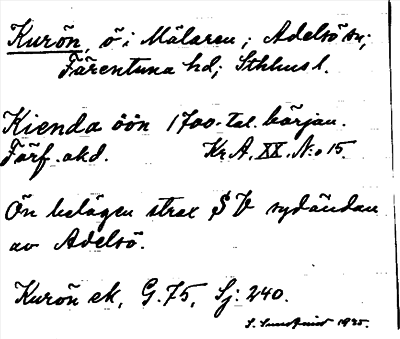 Kurön, ö i Mälaren; Adelsö sn;
Färentuna hd; Sthlms l.
Kienda öön 1700-tal. början.
Förf. akd. Kr.A. XX. N:o 15.
Ön belägen strax SV sydändan
av Adelsö.
Kurön ek, G. 75, Sj: 240.
S. Sundqvist 1925.